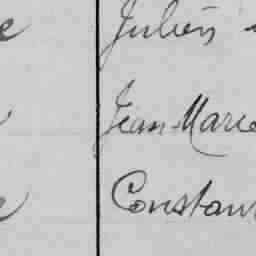 Julien
Jean Marie
Constan